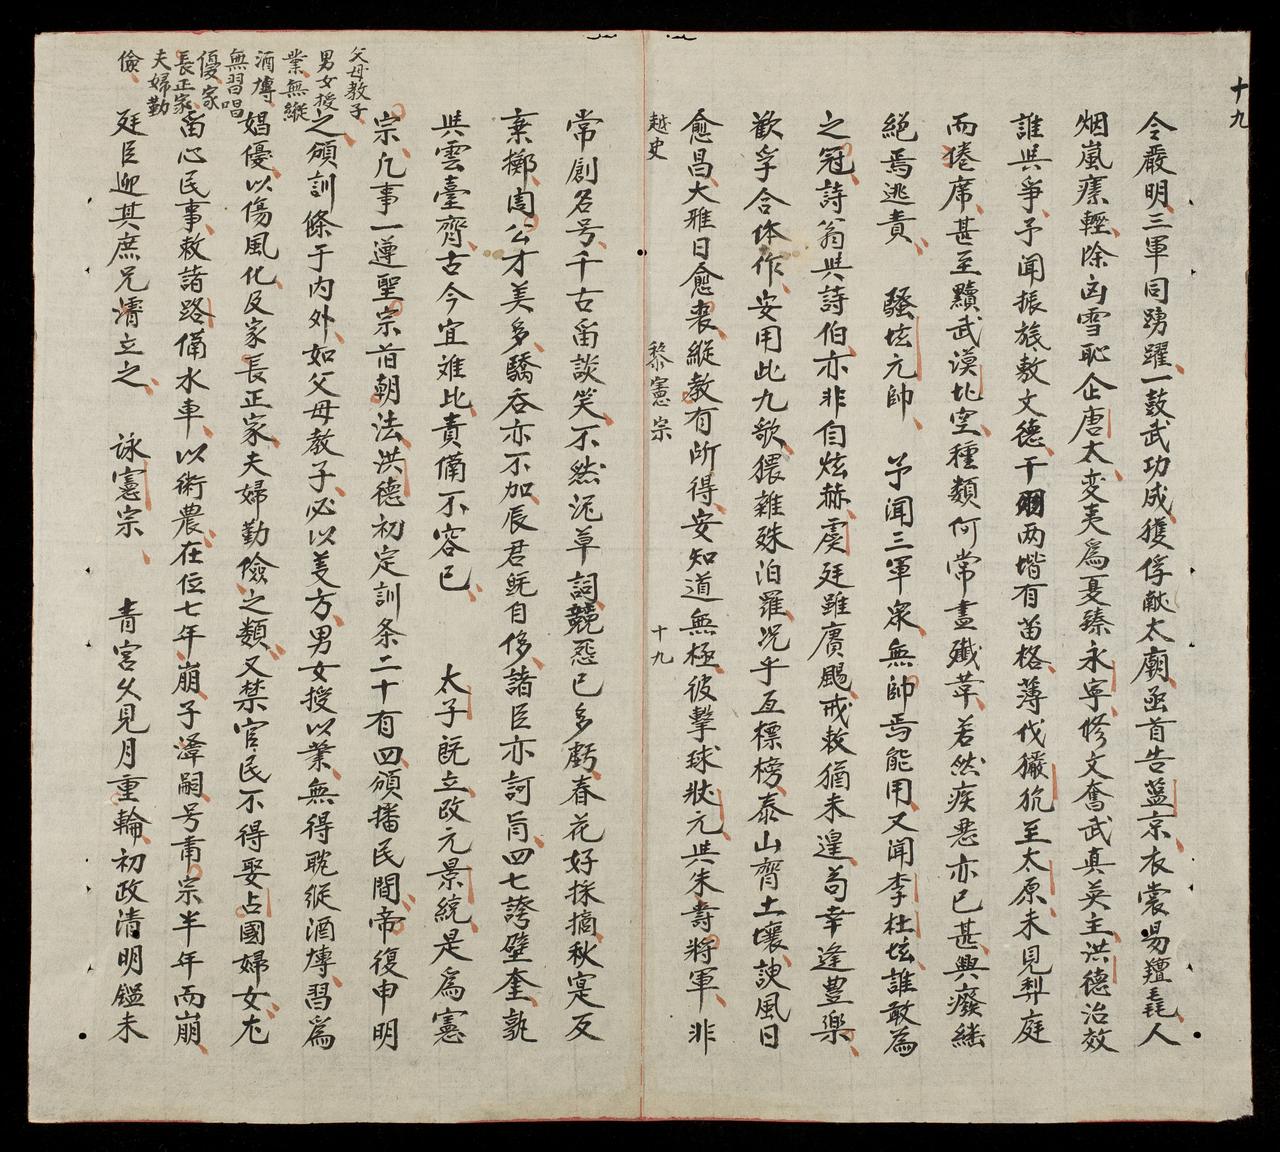 十九
令嚴明三軍同踴躍一鼓武功成獲俘献太廟函首告藍京衣裳易羶毳人
烟嵐瘴輕除凶雪恥企唐太变夷為夏臻永寜修文奮武真英主洪德治效
誰與爭予聞振旅敷文德干羽两堦有苗格薄伐玁狁至太原未見犁庭
而捲席甚至黷武漠北空種類何常盡殲革若然疾惡亦已甚興癈继
絕焉逃責 騷坛元帅 予聞三軍衆無帥焉能用又聞李杜坛誰敢為
之冠詩翁與詩伯亦非自炫赫虞廷雖賡颺戒敕猶未遑苟幸逢豊樂
歡孚合体作安用此九歌猥雜殊泊羅况乎互標榜泰山齊土壤諛風日
愈昌大雅日愈喪縱教有所得安知道無極彼擊球狀元與朱壽將軍非
越史 黎憲宗 十九
常創名号千古畱談笑不然泥草詞競惡已多虧春花好採摘秋寔反
棄擲周公才美多驕吝亦不加辰君既自侈諸臣亦訶㫖四七誇壁奎孰
與雲臺齊古今宜难比責備不容已 太子既立改元景統是為憲
宗凡事一遵聖宗旧朝法洪德初定訓条二十有四頒播民間帝復申明
之頒訓條于内外如父母教子必以義方男女授以業無得耽縱酒博習為
娼優以傷風化及家長正家夫婦勤儉之類又禁官民不得娶占國婦女尤
畱心民事敕諸路備水車以術農在位七年崩子漳嗣号肅宗半年而崩
廷臣迎其庶兄濬立之 詠憲宗 青宮久見月重輪初政清明鑑未
父母教子
男女授
業無縱
酒博
無習唱
優家
長正家
夫婦勤
儉